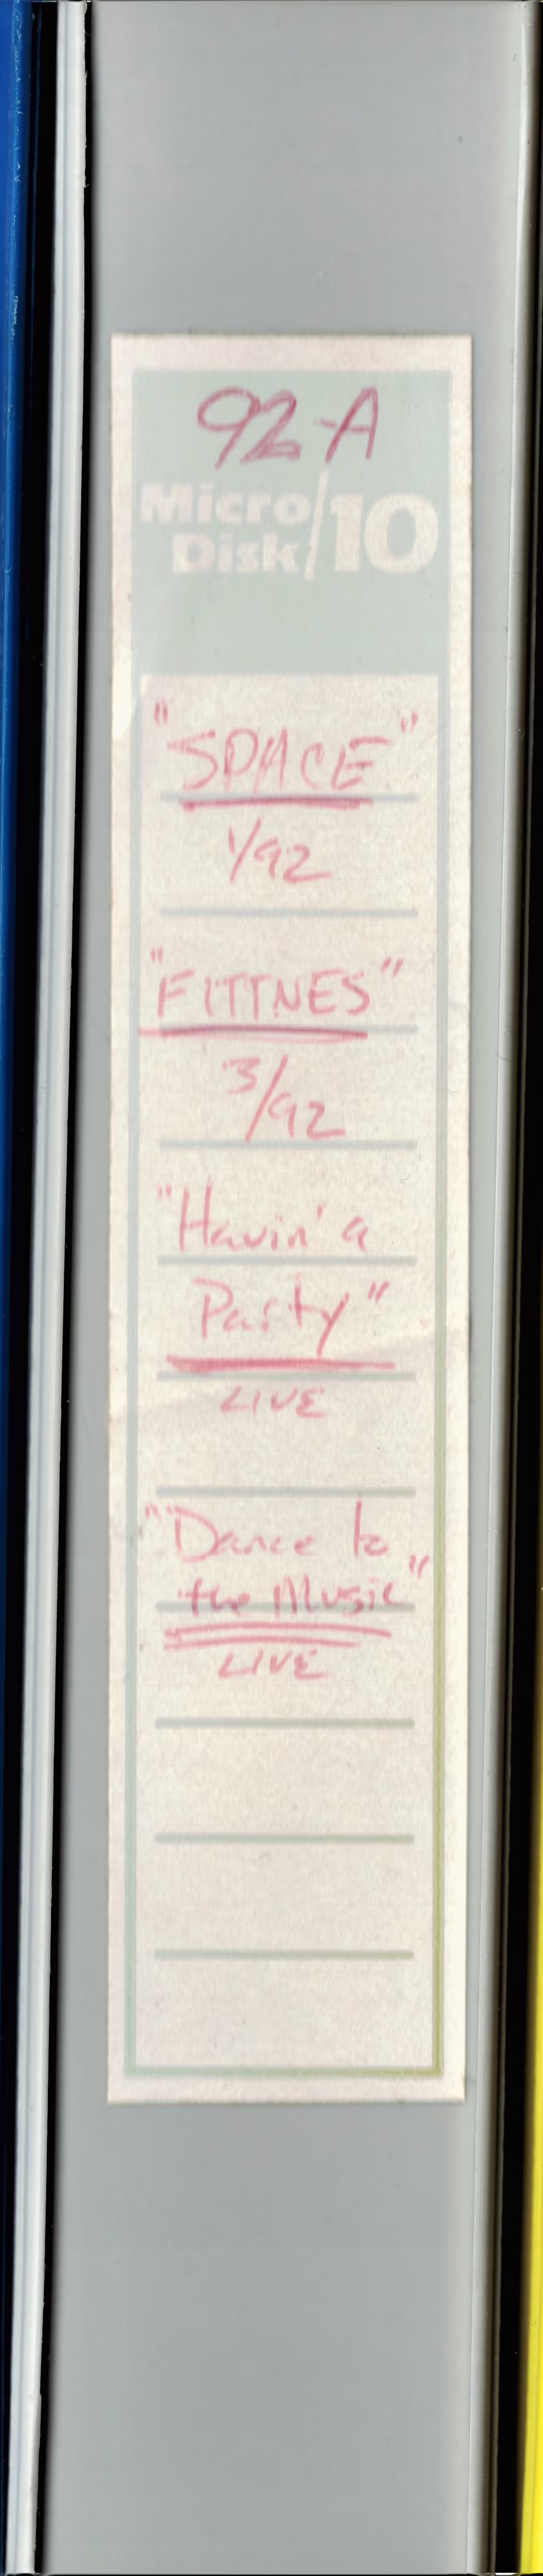 92-A
Micro
Disk/10
"SPACE"
1/92
"FITTNES"
3/92
"Havin' a
Party"
LIVE
"Dance to
the Music"
LIVE